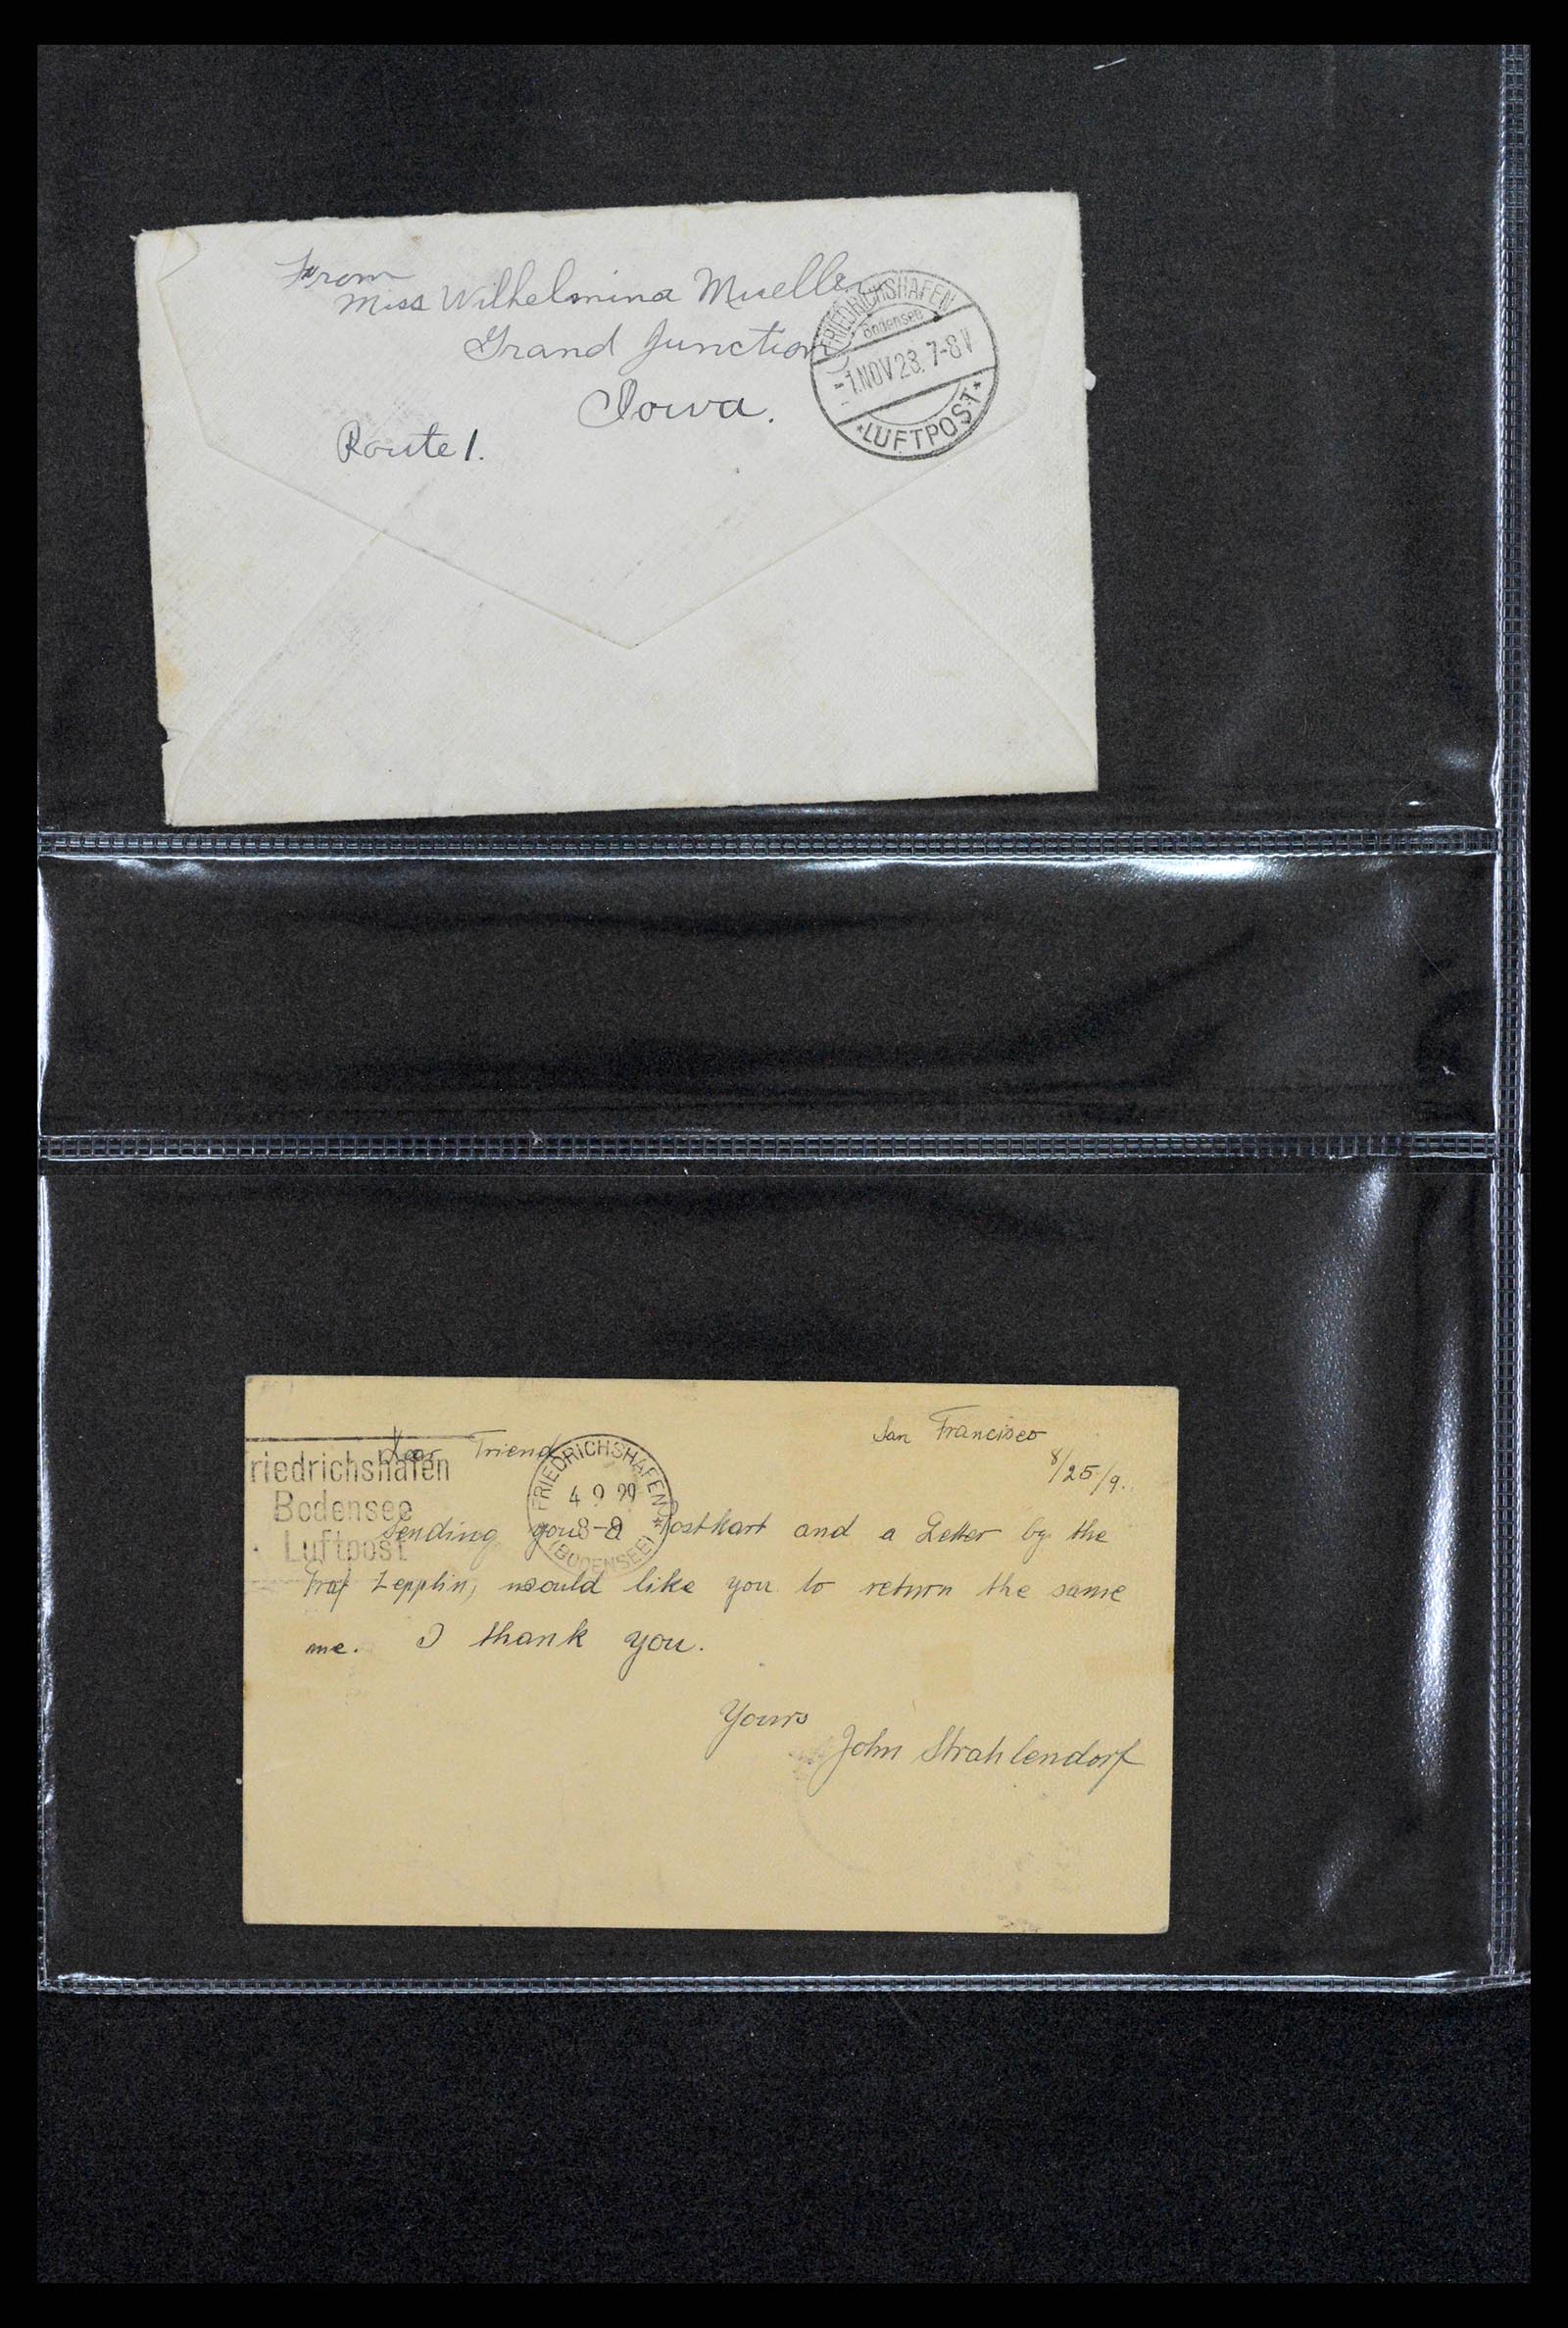 From
Miss Wilhelmina Mueller
Grand Junction
Iowa.
Route 1.
FRIEDRICHSHAFEN
Bodensee
-1.NOV 28. 7-8 V
* LUFTPOST *
San Francisco
8/25/9.
Dear Friend
Sending you Postkart and a Letter by the
Graf Zepplin, would like you to return the same
me. I thank you.
Yours
John Strahlendorf
riedrichshafen
Bodensee
Luftpost
FRIEDRICHSHAFEN
4 9 29
8-9
(BODENSEE)